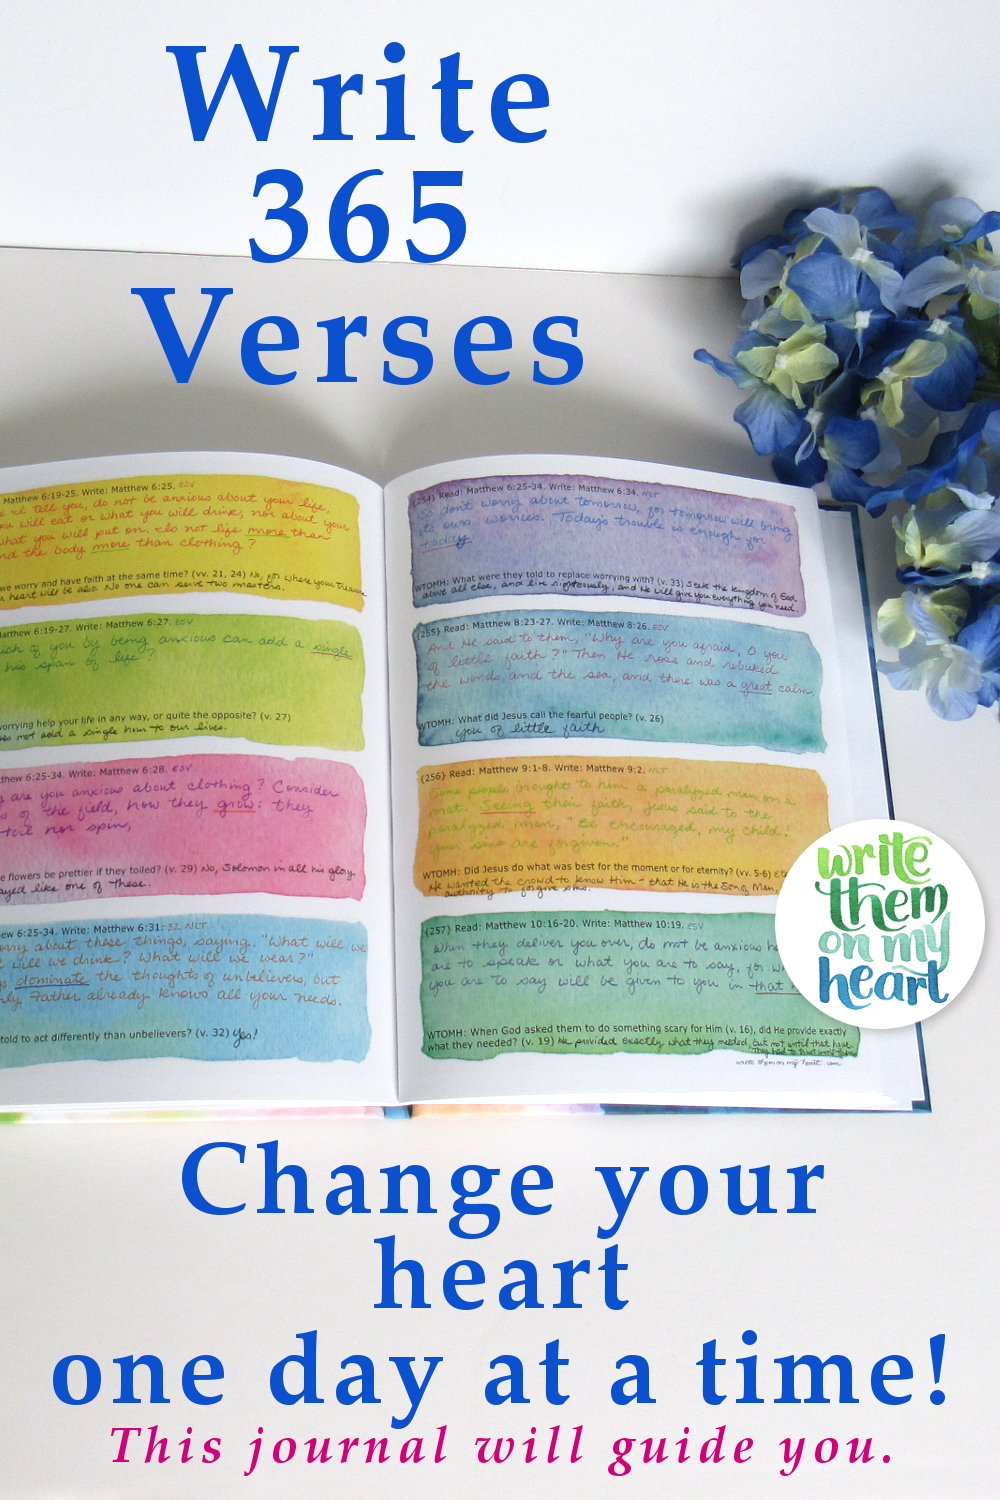 Write
365
Verses
Matthew 6:19-25. Write: Matthew 6:25. ESV
I tell you, do not be anxious about your life,
you will eat or what you will drink, nor about your
what you will put on. Is not life more than
and the body more than clothing?
we worry and have faith at the same time? (vv. 21, 24) No, for where your treasure
heart will be also. No one can serve two masters.
Matthew 6:19-27. Write: Matthew 6:27. ESV
of you by being anxious can add a single
his span of life?
worrying help your life in any way, or quite the opposite? (v. 27)
not add a single hour to our lives.
6:25-34. Write: Matthew 6:28. ESV
are you anxious about clothing? Consider
of the field, how they grow: they
toil nor spin,
flowers be prettier if they toiled? (v. 29) No, Solomon in all his glory
arrayed like one of these.
6:25-34. Write: Matthew 6:31-32 NLT
worry about these things, saying, "What will we
will we drink? What will we wear?"
dominate the thoughts of unbelievers, but
Father already knows all your needs.
told to act differently than unbelievers? (v. 32) Yes!
(254) Read: Matthew 6:25-34. Write: Matthew 6:34. NLT
So don't worry about tomorrow, for tomorrow will bring
its own worries. Today's trouble is enough for
today
WTOMH: What were they told to replace worrying with? (v. 33) Seek the kingdom of God
above all else, and live righteously, and He will give you everything you need.
(255) Read: Matthew 8:23-27. Write: Matthew 8:26. ESV
And He said to them, "Why are you afraid, O you
of little faith?" Then He rose and rebuked
the winds and the sea, and there was a great calm.
WTOMH: What did Jesus call the fearful people? (v. 26)
you of little faith
(256) Read: Matthew 9:1-8. Write: Matthew 9:2. NLT
Some people brought to him a paralyzed man on a
mat. Seeing their faith, Jesus said to the
paralyzed man, "Be encouraged, my child!
Your sins are forgiven."
WTOMH: Did Jesus do what was best for the moment or for eternity? (vv. 5-6)
He wanted the crowd to know Him - that He is the Son of Man,
authority to forgive sins.
(257) Read: Matthew 10:16-20. Write: Matthew 10:19. ESV
When they deliver you over, do not be anxious
are to speak or what you are to say, for
you are to say will be given to you in that
WTOMH: When God asked them to do something scary for Him (v. 16), did He provide exactly
what they needed? (v. 19) He provided exactly what they needed, but not until that hour.
They had to
write them on my heart .com
write
them
on my
heart
Change your
heart
one day at a time!
This journal will guide you.